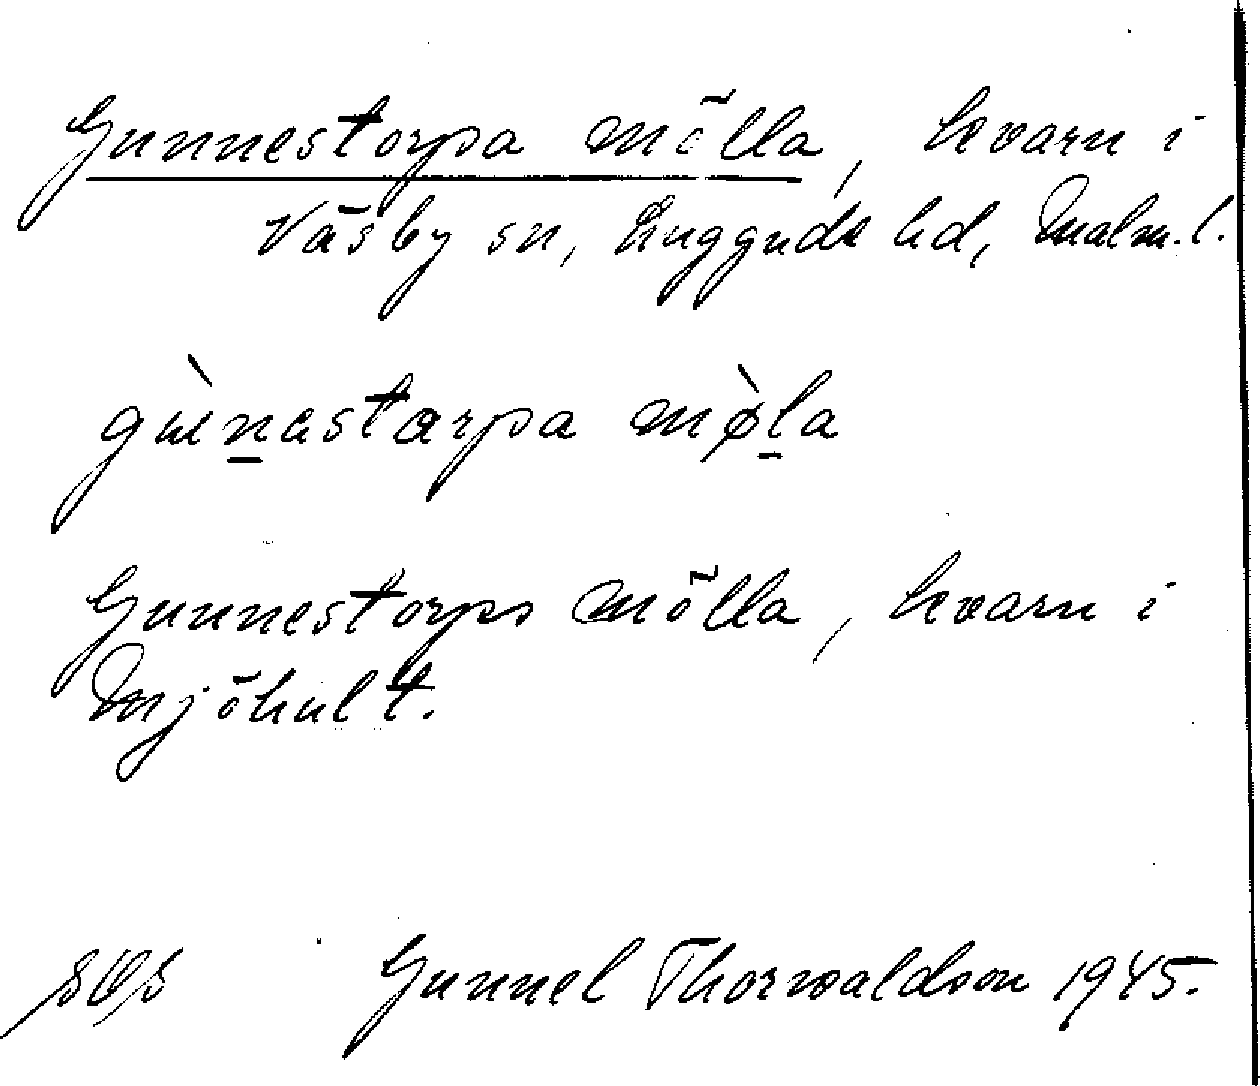 Gunnestorpa mölla, kvarn i
Väsby sn, Luggude hd, Malm. l.
gùnastarpa mø̀la
Gunnestorps mölla, kvarn i
Mjöhult.
Gunnel Thorwaldson 1945.